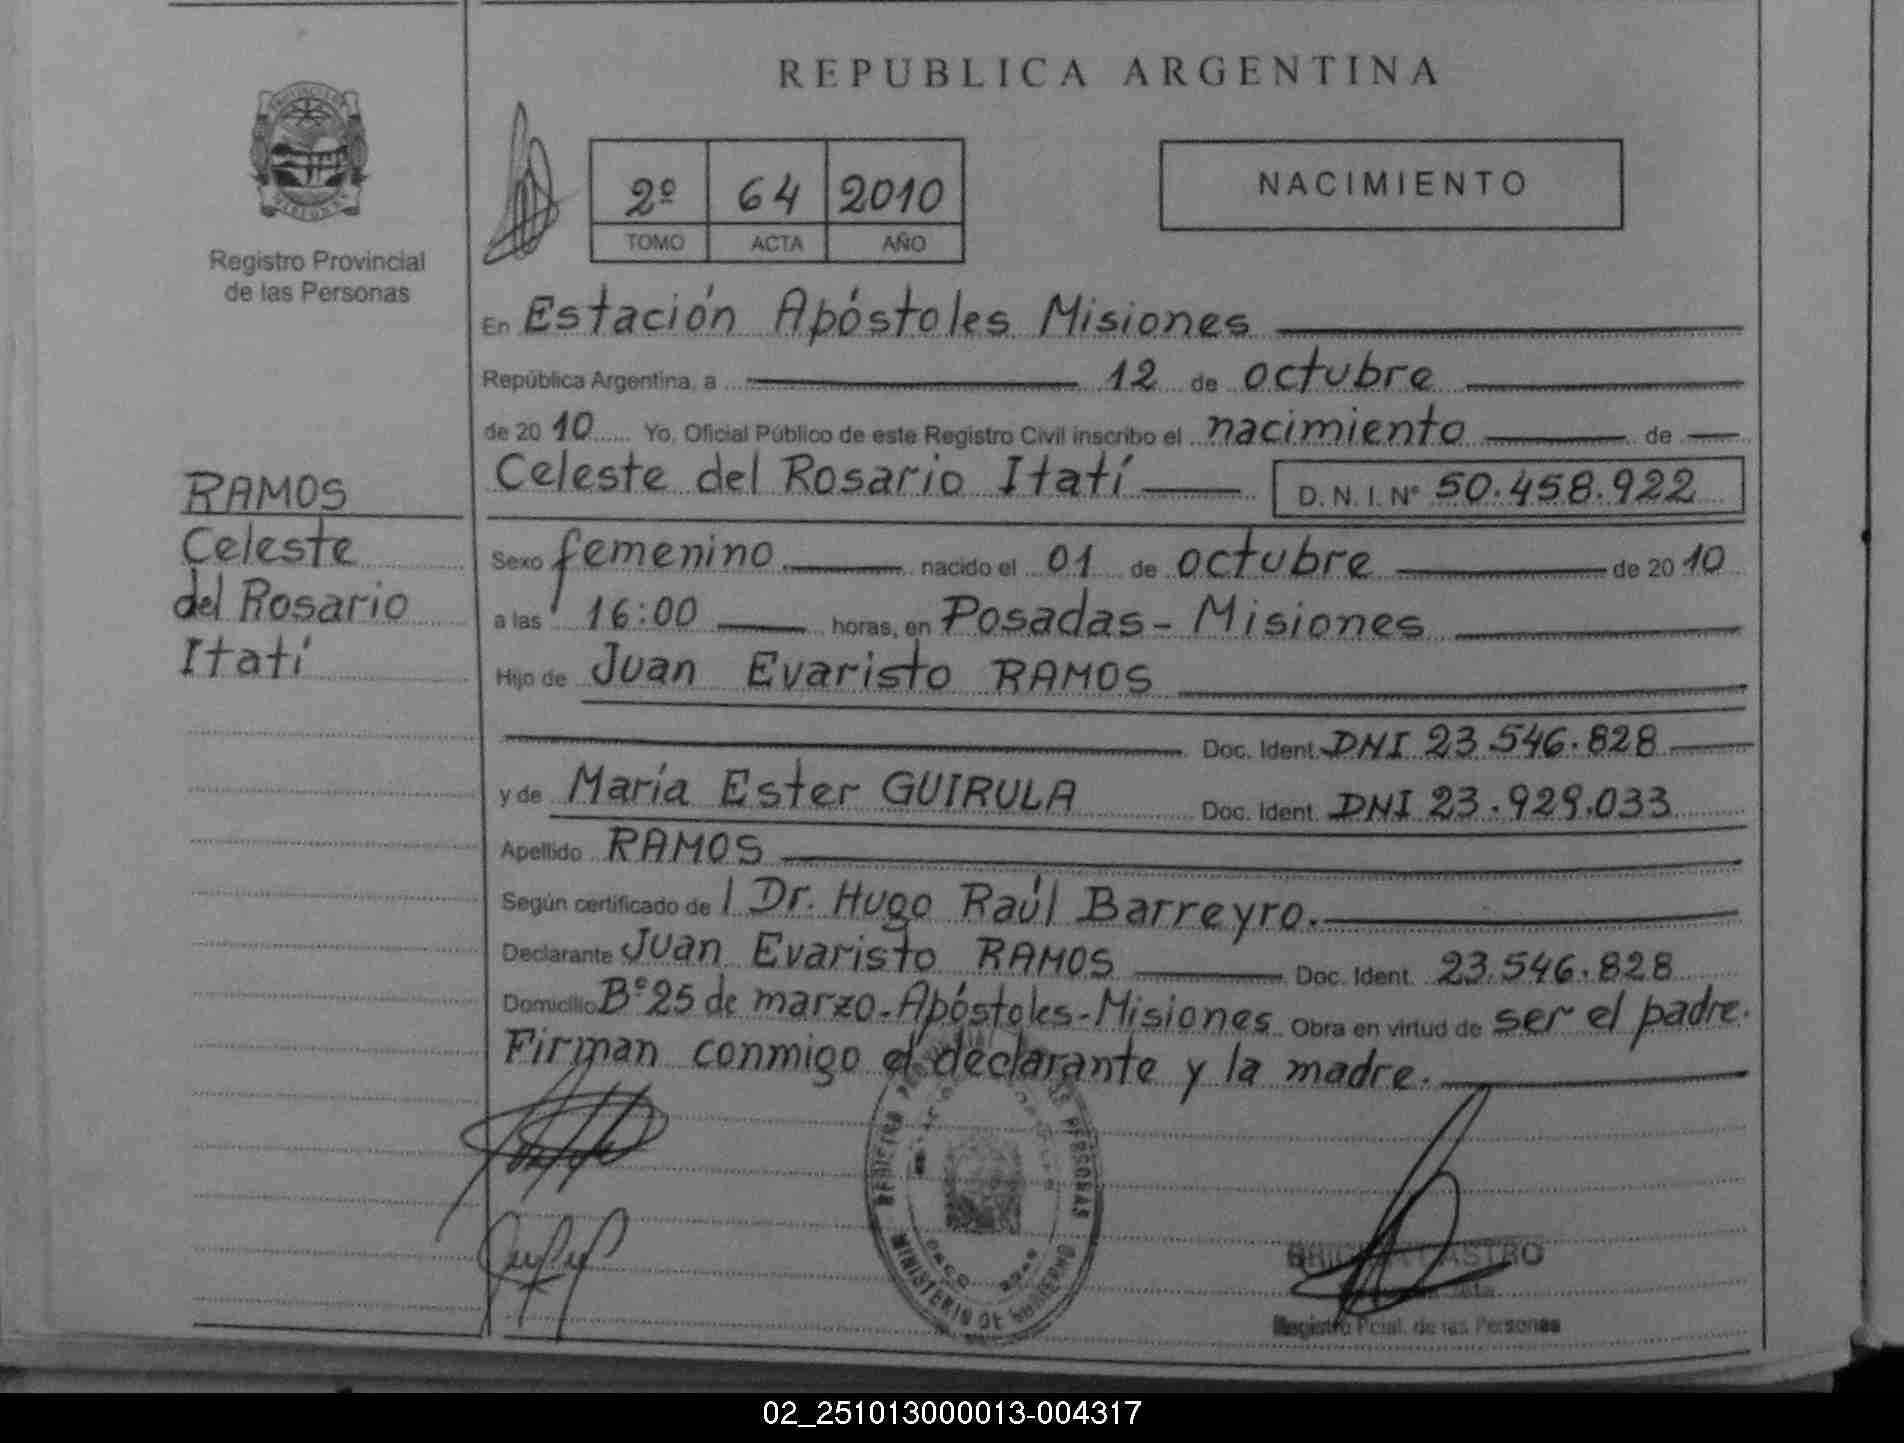 REPUBLICA ARGENTINA
2º 64 2010
TOMO ACTA AÑO
NACIMIENTO
Registro Provincial
de las Personas
En Estación Apóstoles Misiones
República Argentina, a 12 de octubre
de 20 10 Yo, Oficial Público de este Registro Civil inscribo el nacimiento de
Celeste del Rosario Itatí D. N. I. Nº 50.458.922
RAMOS
Celeste
del Rosario
Itatí
Sexo femenino nacido el 01 de octubre de 20 10
a las 16:00 horas, en Posadas - Misiones
Hijo de Juan Evaristo RAMOS
Doc. Ident. DNI 23.546.828
y de María Ester GUIRULA Doc. Ident. DNI 23.929.033
Apellido RAMOS
Según certificado de l Dr. Hugo Raúl Barreyro.
Declarante Juan Evaristo RAMOS Doc. Ident. 23.546.828
Domicilio Bº 25 de marzo - Apóstoles - Misiones Obra en virtud de ser el padre.
Firman conmigo el declarante y la madre.
REGISTRO DE PERSONAS
MINISTERIO DE GOBIERNO
CASTRO
Registro Pcial. de las Personas
02_251013000013-004317